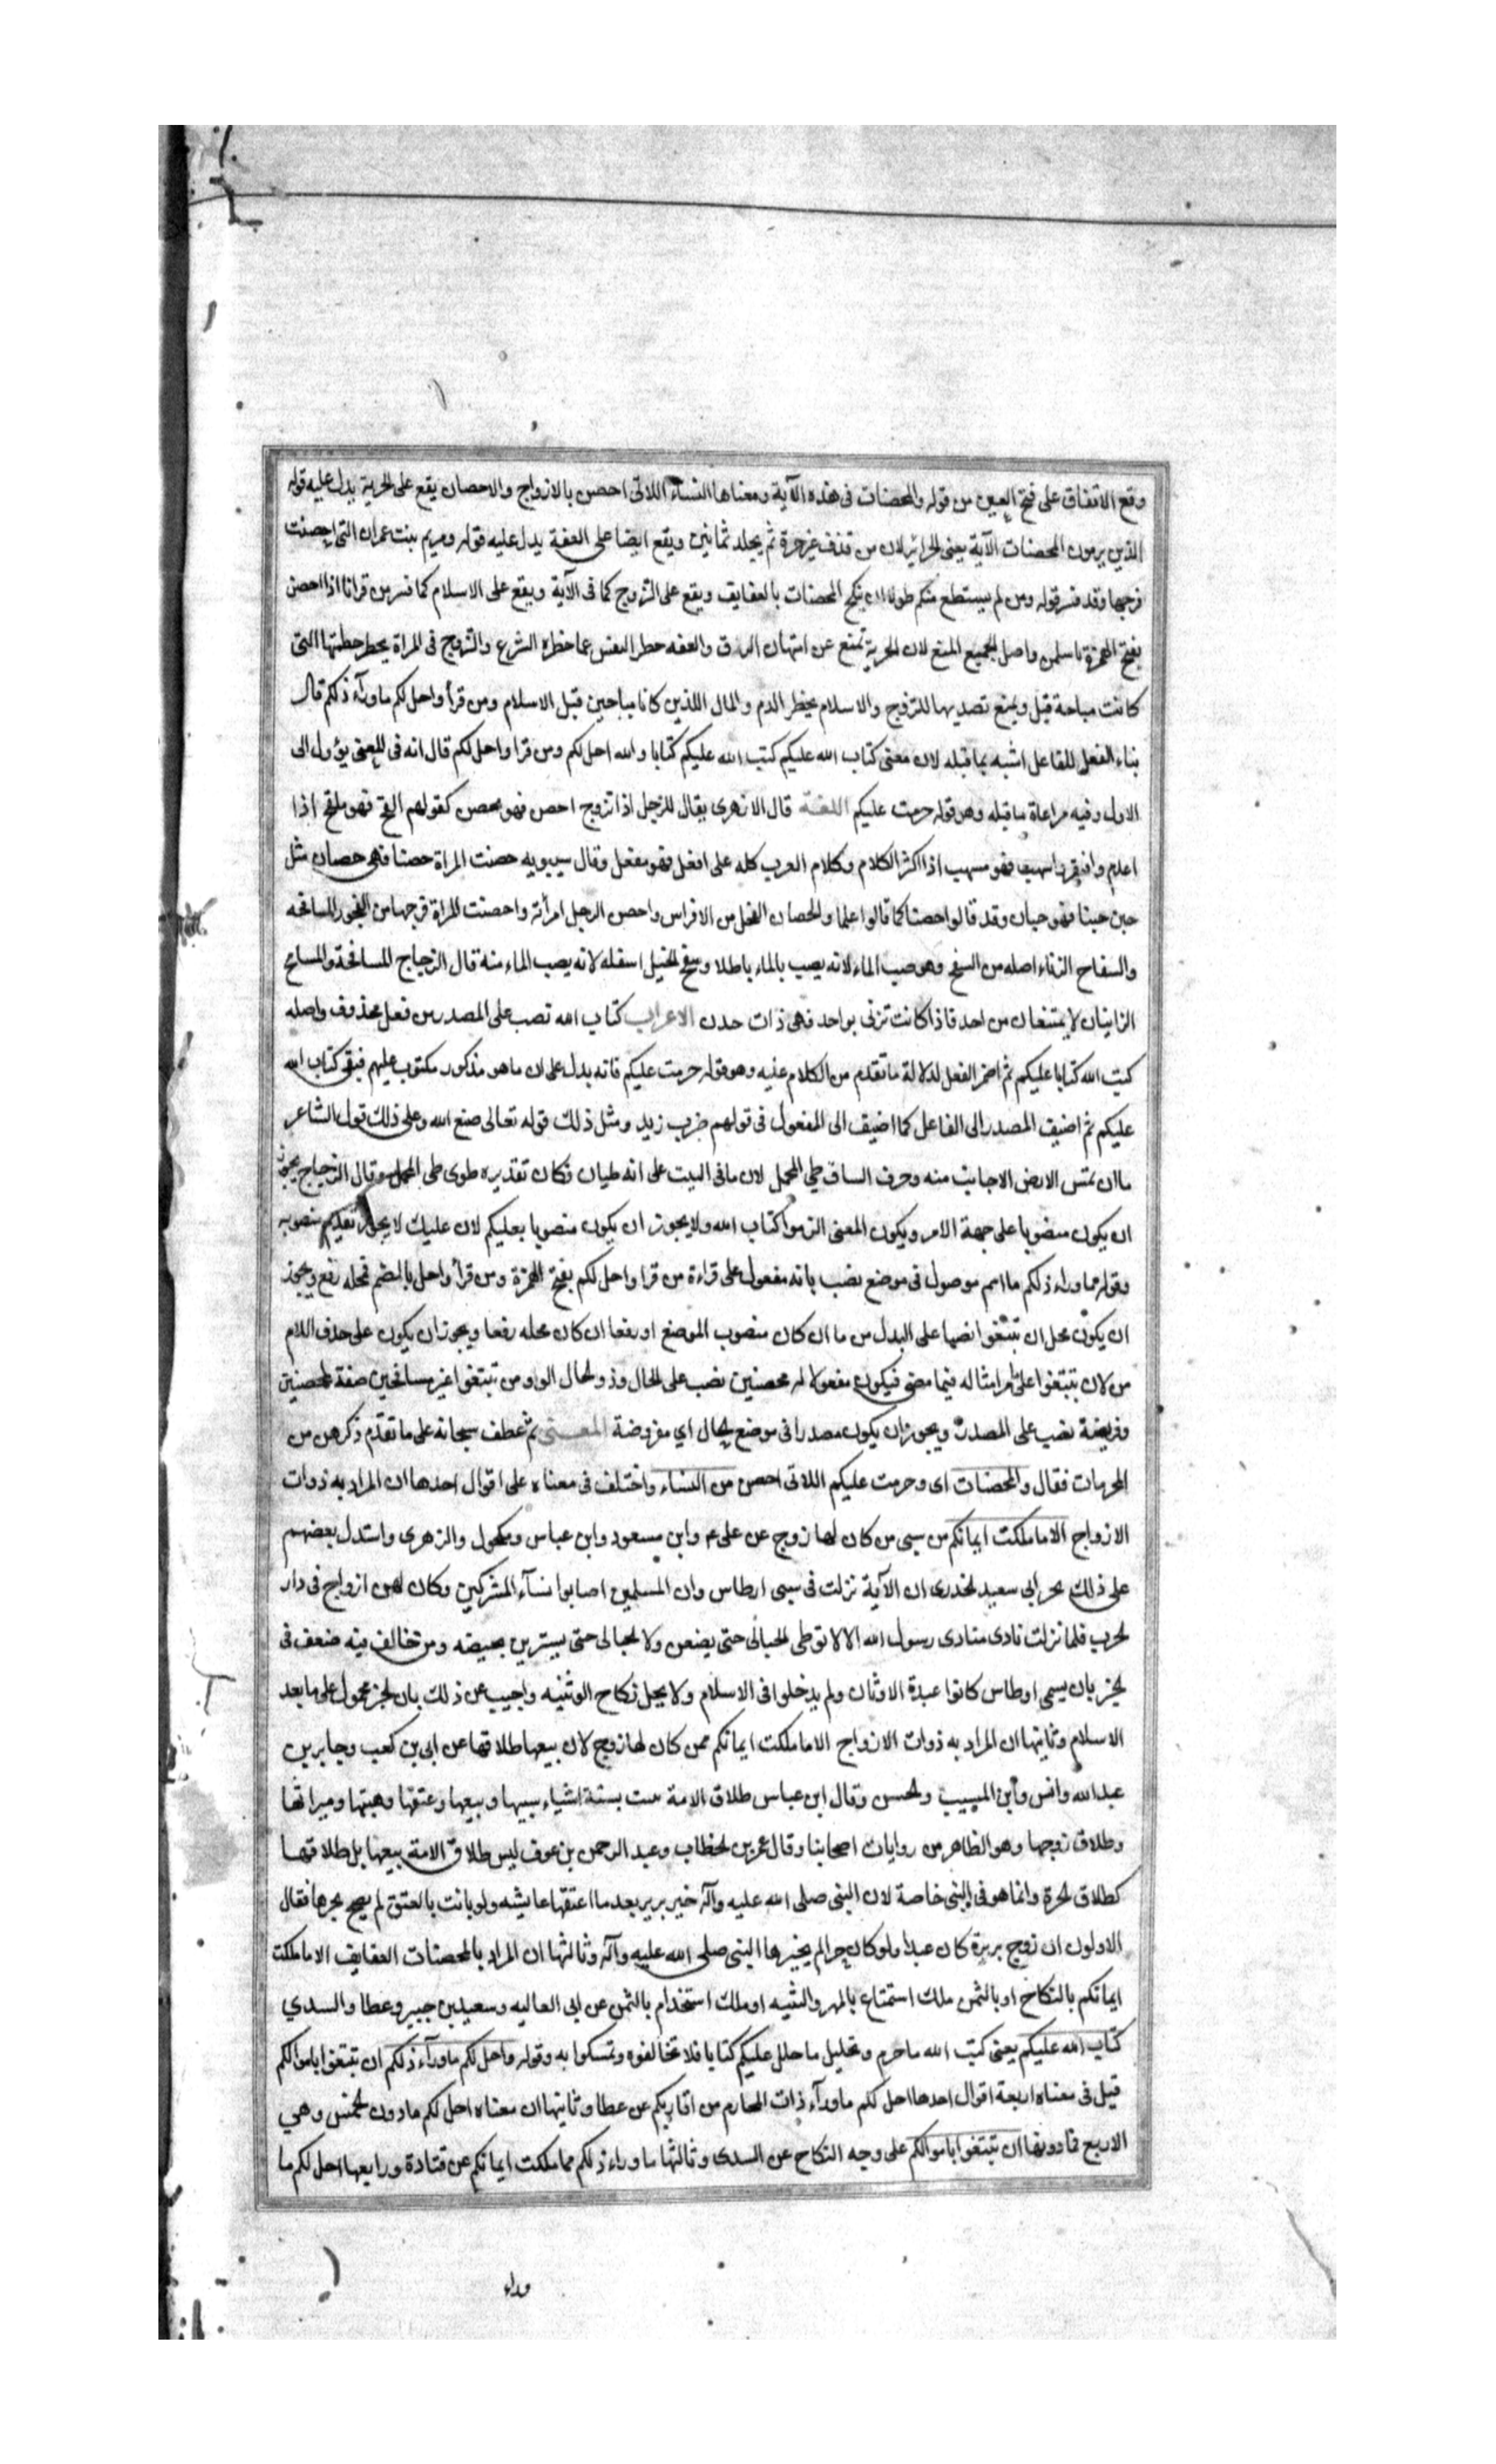 وقع الاتفاق على فتح العين من قوله والمحصنات فى هذه الآية ومعناها النساء اللاتى احصن بالازواج والاحصان يقع على الحرية يدل عليه قوله
الذين يرمون المحصنات الآية يعنى الحراير لان من قذف غير حرة ثم يجلد ثمانين ويقع ايضا على العفة يدل عليه قوله ومريم بنت عمران التى احصنت
فرجها وقد فسر قوله ومن لم يستطع منكم طولا ان ينكح المحصنات بالعفايف ويقع على التزوج كما فى الآية ويقع على الاسلام كما فسر من قرا فاذا احصن
بفتح الهمزة باسلمن واصل الجميع المنع لان الحرية تمنع عن امتهان الرق والعفه حظر النفس عما حظره الشرع والتزوج فى المراة يحظر خطبتها التى
كانت مباحة قبل ويمنع تصديها للتزوج والاسلام يحظر الدم والمال اللذين كانا مباحين قبل الاسلام ومن قرأ واحل لكم ماورآء ذلكم قال
بناء الفعل للفاعل اشبه بما قبله لان معنى كتاب الله عليكم كتب الله عليكم كتابا والله احل لكم ومن قرا واحل لكم قال انه فى المعنى يؤول الى
الاول وفيه مراعاة ما قبله وهو قوله حرمت عليكم اللغـة قال الازهرى يقال للرجل اذا تزوج احصن فهو محصن كقولهم الفج فهو ملفج اذا
اعدم وافتقر واسهب فهو مسهب اذا اكثر الكلام وكلام العرب كله على افعل فهو مفعل وقال سيبويه حصنت المراة حصنا فهى حصان مثل
جبن جبنا فهو جبان وقد قالوا حصنا كما قالوا علما والحصان الفحل من الافراس واحصن الرجل امرأته واحصنت المراة فرجها من الفجور المسافحه
والسفاح الزناء اصله من السفح وهو صب الماء لانه يصب بالماء باطلا وسفح الجبل اسفله لانه يصب الماء منه قال الزجاج المسافحة والمسافح
الزانيان لا يمتنعان من احد فاذا كانت تزنى بواحد فهى ذات خدن الاعراب كتاب الله نصب على المصدر من فعل محذوف واصله
كتب الله كتابا عليكم ثم اضمر الفعل لدلالة ما تقدم من الكلام عليه وهو قوله حرمت عليكم فانه يدل على ان ما هو مذكور مكتوب عليهم فبقى كتاب الله
عليكم ثم اضيف المصدر الى الفاعل كما اضيف الى المفعول فى قولهم ضرب زيد ومثل ذلك قوله تعالى صنع الله وعلى ذلك قول الشاعر
ما ان تمس الارض الا جانب منه وحرف الساق طي المحمل لان ما فى البيت على انه طيان فكان تقديره طوى طى المحمل وقال الزجاج يجوز
ان يكون منصوبا على جهة الامر ويكون المعنى الزموا كتاب الله ولا يجوز ان يكون منصوبا بعليكم لان عليك لا يجوز تقديم منصوبه
وقوله ما وراء ذلكم ما اسم موصول فى موضع نصب بانه مفعول على قراءة من قرا واحل لكم بفتح الهمزة ومن قرأ واحل بالضم فمحله رفع ويجوز
ان يكون محل ان تبتغوا نصبا على البدل من ما ان كان منصوب الموضع او رفعا ان كان محله رفعا ويجوز ان يكون على حذف اللام
من لان تبتغوا على ما مر امثاله فيما مضى فيكون مفعولا له محصنين نصب على الحال وذو الحال الواو من تبتغوا غير مسافحين صفة لمحصنين
وفريضة نصب على المصدر ويجوز ان يكون مصدرا فى موضع الحال اي مفروضة المعـنى ثم عطف سبحانه على ما تقدم ذكرهن من
المحرمات فقال والمحصنات اى وحرمت عليكم اللاتى احصن من النساء واختلف فى معناه على اقوال احدها ان المراد به ذوات
الازواج الا ما ملكت ايمانكم من سبى من كان لها زوج عن على ع وابن مسعود وابن عباس ومكحول والزهرى واستدل بعضهم
على ذلك بخبر ابى سعيد الخدرى ان الآية نزلت فى سبى اوطاس وان المسلمين اصابوا نسآء المشركين وكان لهن ازواج فى دار
الحرب فلما نزلت نادى منادى رسول الله الا لا توطى الحبالى حتى يضعن ولا الحبالى حتى يستبرين بحيضه ومن خالف فيه ضعف فى
الخبر بان سبى اوطاس كانوا عبدة الاوثان ولم يدخلوا فى الاسلام ولا يحل نكاح الوثنيه واجيب عن ذلك بان الخبر محمول على ما بعد
الاسلام وثانيها ان المراد به ذوات الازواج الا ما ملكت ايمانكم ممن كان لها زوج لان بيعها طلاقها عن ابى بن كعب وجابر بن
عبد الله وانس وابن المسيب والحسن وقال ابن عباس طلاق الامة ست بستة اشياء سبيها وبيعها وعتقها وهبتها وميراثها
وطلاق زوجها وهو الظاهر من روايات اصحابنا وقال عمر بن الخطاب وعبد الرحمن بن عوف ليس طلاق الامة بيعها بل طلاقها
كطلاق الحرة وانما هو فى السبى خاصة لان النبى صلى الله عليه وآله خير برير بعد ما اعتقتها عايشه ولو بانت بالعتق لم يصح فقال
الاولون ان زوج بريرة كان عبدا ولو كان حرا لم يخيرها النبى صلى الله عليه وآله وثالثها ان المراد بالمحصنات العفايف الا ما ملكت
ايمانكم بالنكاح او بالثمن ملك استمتاع بالمهر والنفقه او ملك استخدام بالثمن عن ابى العاليه وسعيد بن جبير وعطا والسدي
كتاب الله عليكم يعنى كتب الله ما حرم وتحليل ما حلل عليكم كتابا فلا تخالفوه وتمسكوا به وقوله واحل لكم ماورآء ذلكم ان تبتغوا باموالكم
قيل فى معناه اربعة اقوال احدها احل لكم ماورآء ذات المحارم من اقاربكم عن عطا وثانيها ان معناه احل لكم ما دون الخمس وهي
الاربع فما دونها ان تبتغوا باموالكم على وجه النكاح عن السدى وثالثها ما وراء ذلكم مما ملكت ايمانكم عن قتادة ورابعها احل لكم ما
وراء